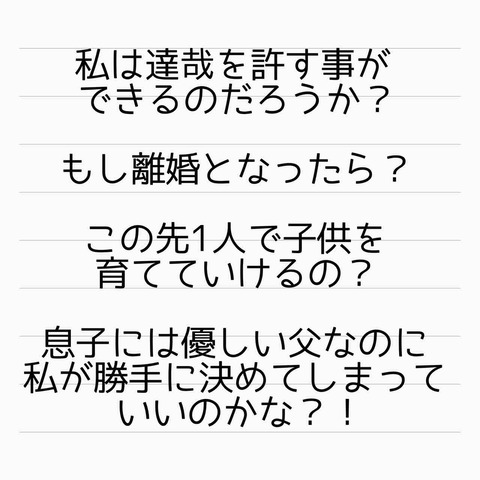 私は達哉を許す事が
できるのだろうか？
もし離婚となったら？
この先1人で子供を
育てていけるの？
息子には優しい父なのに
私が勝手に決めてしまって
いいのかな？！